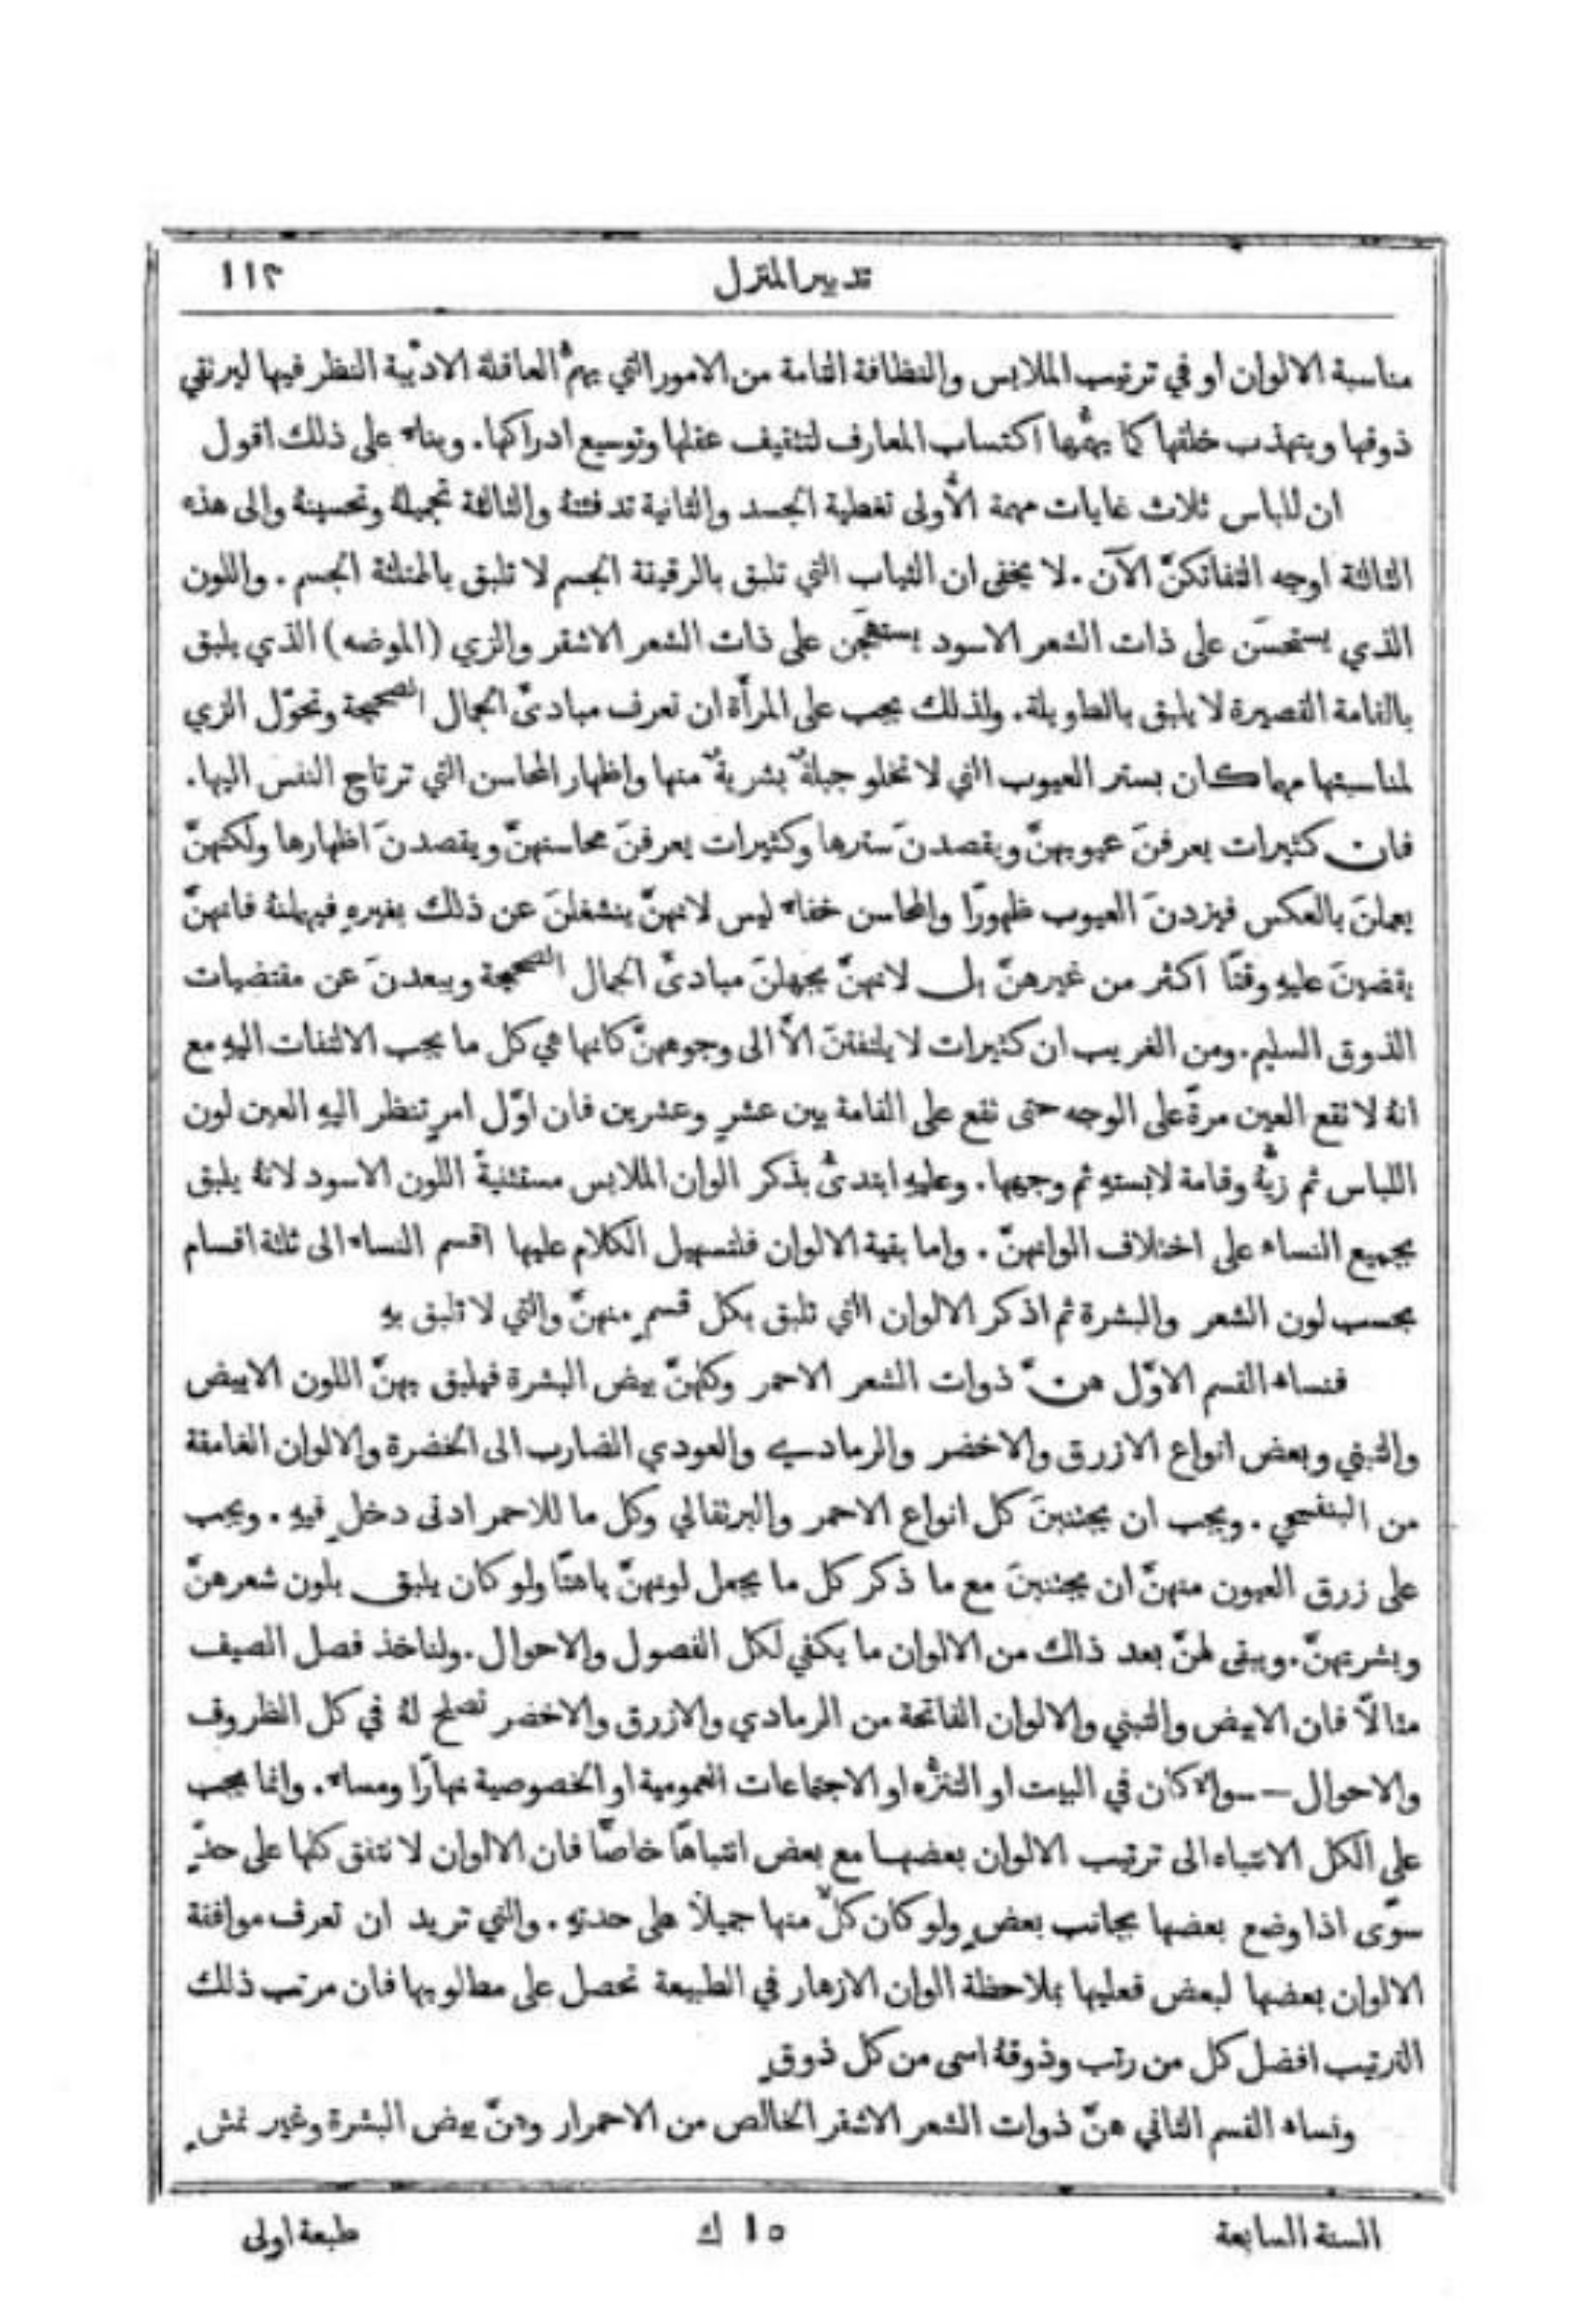 تدبير المنزل
١١٣
مناسبة الالوان او في ترتيب الملابس والنظافة التامة من الامور التي يهمُّ العاقلة الاديّبة النظر فيها ليرتقي
ذوقها ويتهذب خلقها كما يهمُّها اكتساب المعارف لتثقيف عقلها وتوسيع ادراكها. وبناء على ذلك اقول
ان للباس ثلاث غايات مهمة الأُولى تغطية الجسد والثانية تدفئتهُ والثالثة تجميلهُ وتحسينهُ والى هذه
الثالثة اوجه التفاتكنَّ الآن. لا يخفى ان الثياب التي تليق بالرقيقة الجسم لا تليق بالممتلئة الجسم. واللون
الذي يستحسَن على ذات الشعر الاسود يستهجَن على ذات الشعر الاشقر والزي (الموضه) الذي يليق
بالقامة القصيرة لا يليق بالطويلة. ولذلك يجب على المرأَة ان تعرف مبادئَ الجمال الصحيحة وتحوّل الزي
لمناسبتها مهما كان بستر العيوب التي لا تخلو جبلةٌ بشريةٌ منها واظهار المحاسن التي ترتاح النفس اليها.
فان كثيرات يعرفنَ عيوبهنَّ ويقصدنَ سترها وكثيرات يعرفنَ محاسنهنَّ ويقصدنَ اظهارها ولكنهنَّ
يعملنَ بالعكس فيزدنَ العيوب ظهورًا والمحاسن خفاء ليس لانهنَّ ينشغلنَ عن ذلك بغيرهِ فيهملنهُ فانهنَّ
يقضينَ عليهِ وقتًا اكثر من غيرهنَّ بل لانهنَّ يجهلنَ مبادئَ الجمال الصحيحة ويبعدنَ عن مقتضيات
الذوق السليم. ومن الغريب ان كثيرات لا يلتفتنَ الاَّ الى وجوههنَّ كانها هي كل ما يجب الالتفات اليهِ مع
انهُ لا تقع العين مرةً على الوجه حتى تقع على القامة بين عشرٍ وعشرين فان اوّل امرٍ تنظر اليهِ العين لون
اللباس ثم زيُّهُ وقامة لابستهِ ثم وجهها. وعليهِ ابتدئُ بذكر الوان الملابس مستثنيةً اللون الاسود لانهُ يليق
بجميع النساء على اختلاف الوانهنَّ. واما بقية الالوان فلتسهيل الكلام عليها اقسم النساء الى ثلثة اقسام
بحسب لون الشعر والبشرة ثم اذكر الالوان التي تليق بكل قسمٍ منهنَّ والتي لا تليق بهِ
فنساء القسم الاوّل هنَّ ذوات الشعر الاحمر وكلهنَّ بيض البشرة فيليق بهنَّ اللون الابيض
والتبني وبعض انواع الازرق والاخضر والرمادي والعودي الضارب الى الخضرة والالوان الغامقة
من البنفسجي. ويجب ان يجتنبنَ كل انواع الاحمر والبرتقالي وكل ما للاحمر ادنى دخلٍ فيهِ. ويجب
على زرق العيون منهنَّ ان يجتنبنَ مع ما ذكر كل ما يجعل لونهنَّ باهتًا ولو كان يليق بلون شعرهنَّ
وبشرتهنَّ. ويبقى لهنَّ بعد ذلك من الالوان ما يكفي لكل الفصول والاحوال. ولناخذ فصل الصيف
مثالاً فان الابيض والتبني والالوان الفاتحة من الرمادي والازرق والاخضر تصلح لهُ في كل الظروف
والاحوال – سوالا كان في البيت او التنزُّه او الاجتماعات العمومية او الخصوصية نهارًا ومساء. وانما يجب
على الكل الانتباه الى ترتيب الالوان بعضها مع بعض انتباهًا خاصًّا فان الالوان لا تتفق كلها على حدٍّ
سوًى اذا وضع بعضها بجانب بعضٍ ولو كان كلٌّ منها جميلاً على حدتهِ. والتي تريد ان تعرف موافقة
الالوان بعضها لبعض فعليها بملاحظة الوان الازهار في الطبيعة تحصل على مطلوبها فان مرتب ذلك
الترتيب افضل كل من رتب وذوقهُ اسمى من كل ذوقٍ
ونساء القسم الثاني هنَّ ذوات الشعر الاشقر الخالص من الاحمرار وهنَّ بيض البشرة وغير نمشٍ
السنة السابعة
١٥ ك
طبعة اولى